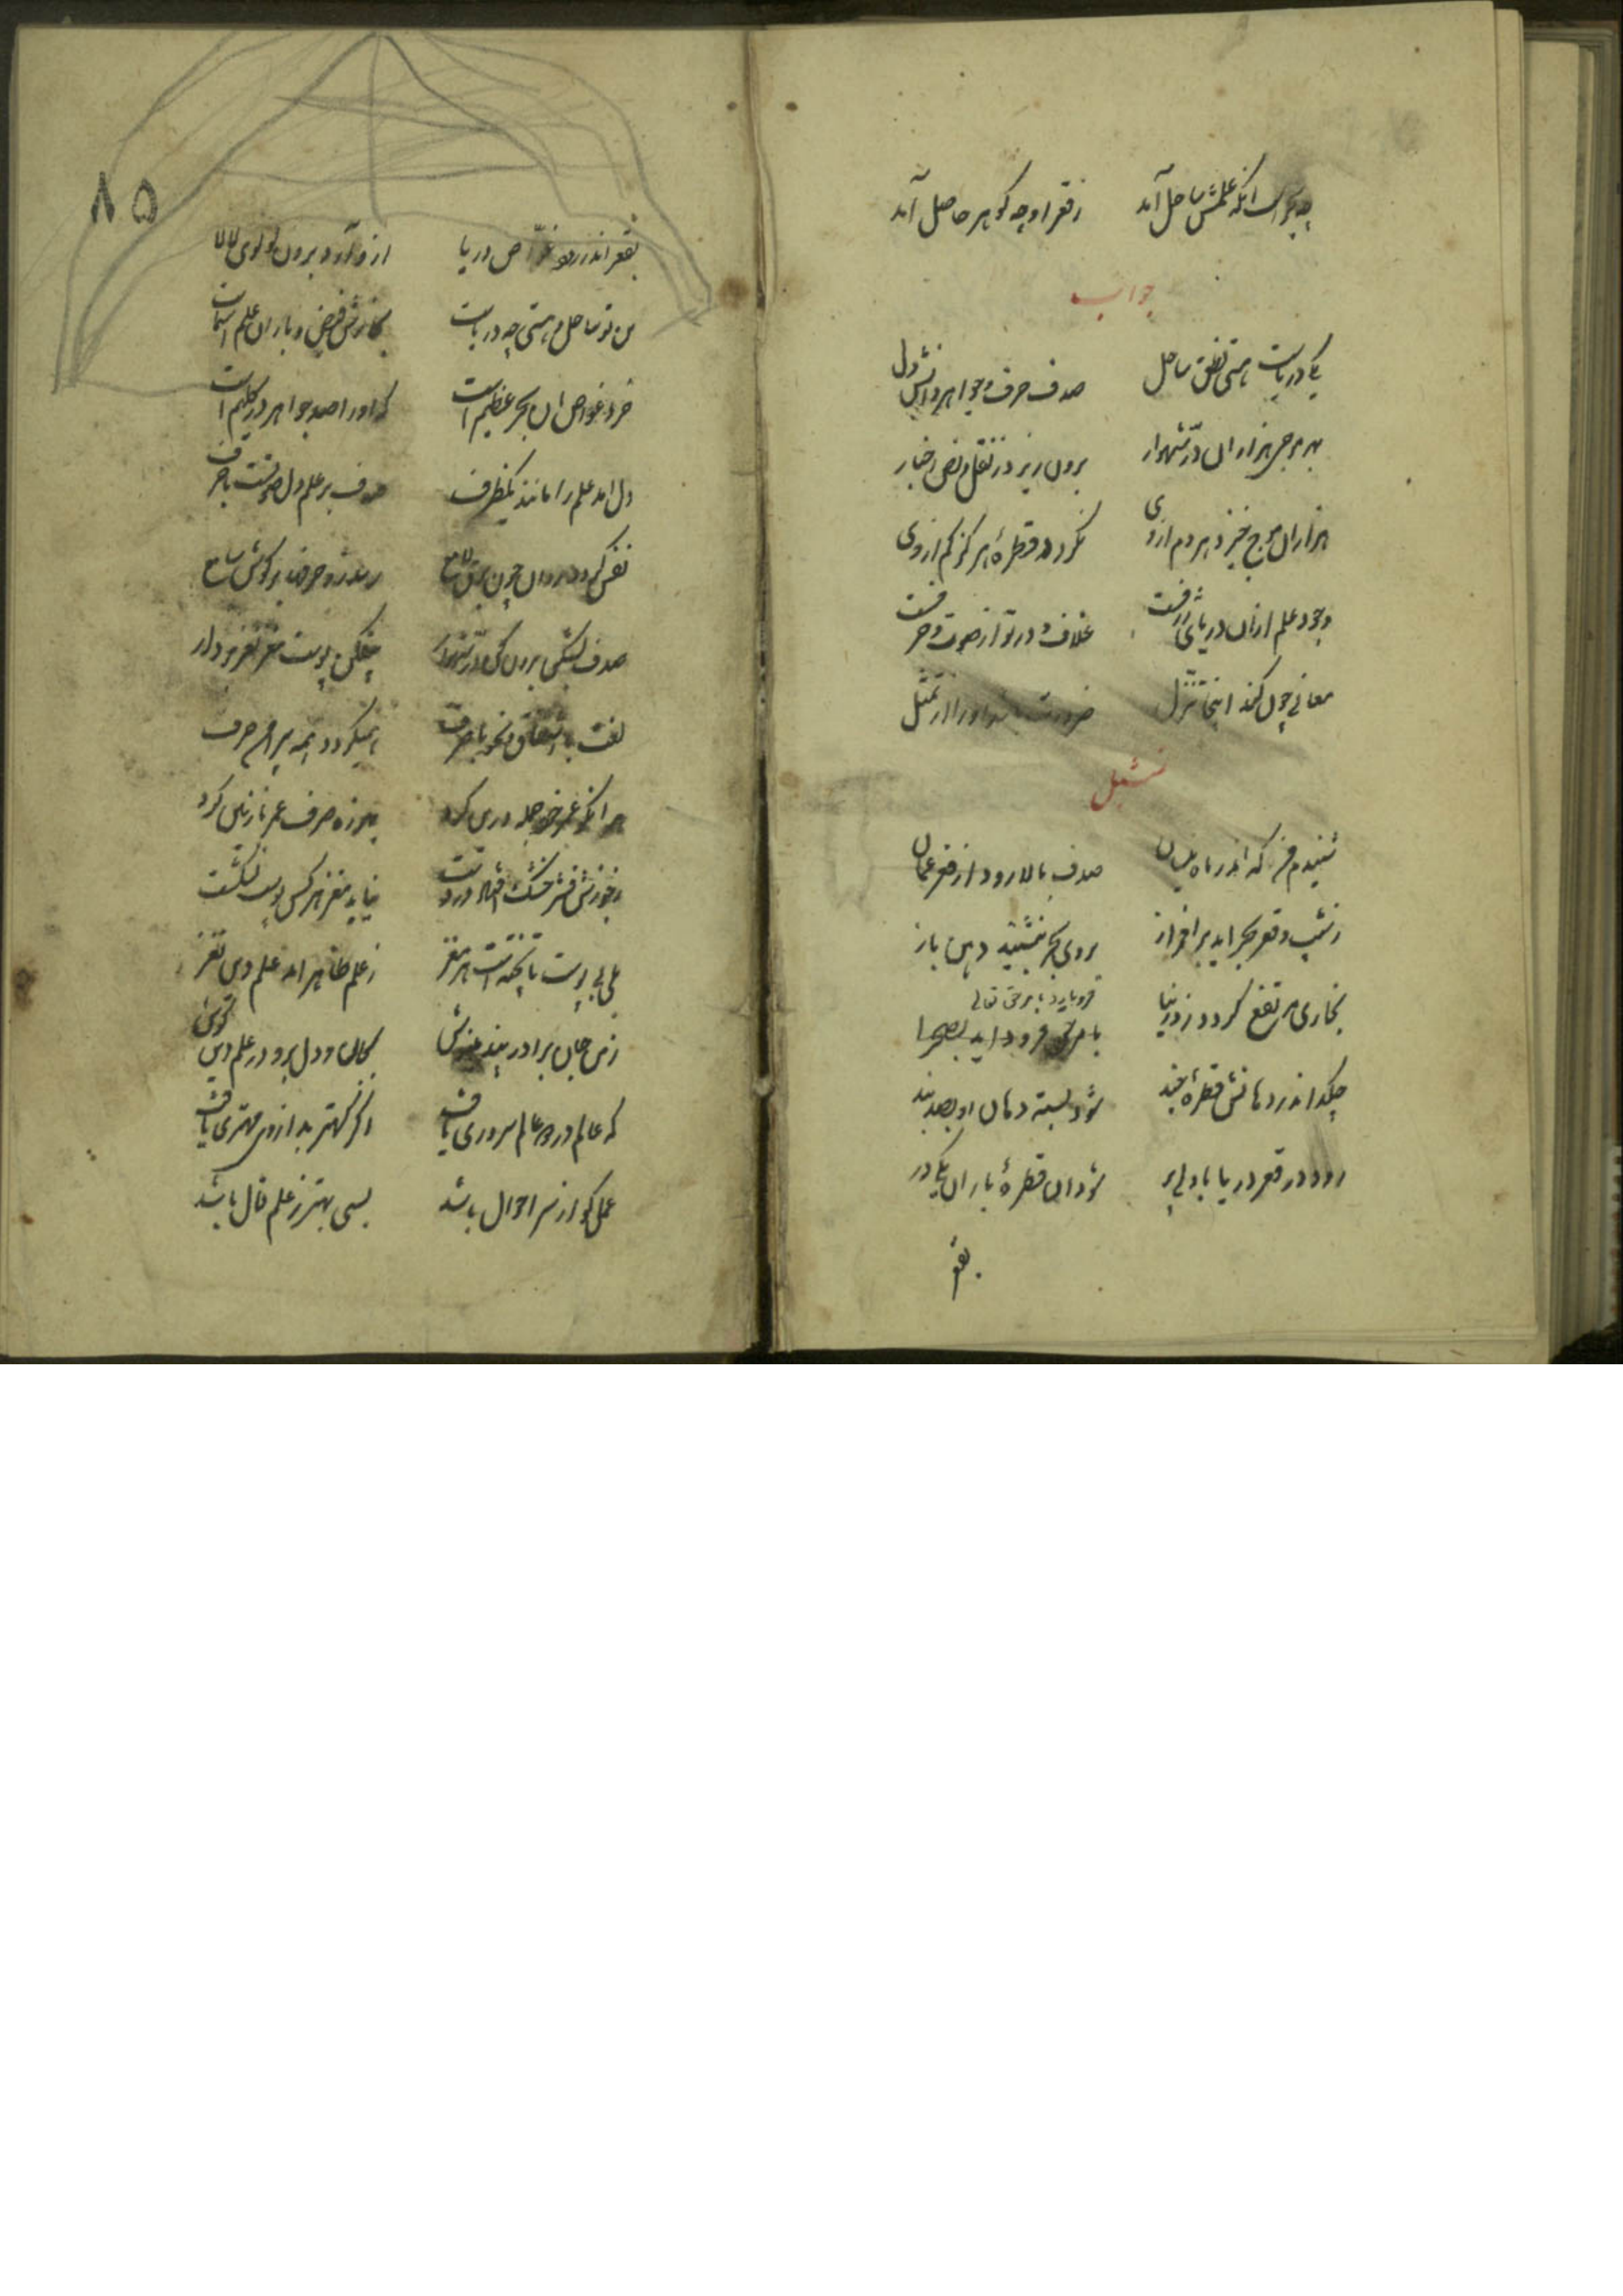 چه بحرست آنکه علمش ساحل آمد ز قعر او چه گوهر حاصل آمد
جواب
یکی دریاست هستی نطق ساحل صدف حرف و جواهر دانش دل
بهر موجی هزاران در شهوار برون ریزد ز نقل و نص و اخبار
هزاران موج خیزد هر دم از وی نگردد قطرهٔ هرگز کم از وی
وجود علم ازان دریای ژرفست غلاف در تو از صوت و حرفست
معانی چون کند اینجا تنزل ضرورت باشد او را از تمثل
تمثیل
شنیدم من که اندر ماه نیسان صدف بالا رود از قعر عمان
ز شیب قعر بحر آید برافراز بروی بحر بنشیند دهن باز
بخاری مرتفع گردد ز دریا
فرو بارد بامر حق تعالی
بامر حق فرود آید بصحرا
چکد اندر دهانش قطرهٔ چند شود بسته دهان او بصد بند
رود در قعر دریا با دلی پر شود آن قطرهٔ باران یکی در
بقعر
۸۵
بقعر اندر رود غواص دریا ازو آرد برون لولوی لالا
تن تو ساحل و هستی چه دریاست بخارش فیض و باران علم اسماست
خرد غواص آن بحر عظیم است که او را صد جواهر در گلیم است
دل آمد علم را مانند یک ظرف صدف بر علم دل صوتست با حرف
نفس گردد روان چون برق لامع رسد زو حرفها بر گوش سامع
صدف بشکن برون کن در شهوار بیفکن پوست مغز نغز بردار
لغت با اشتقاق و نحو با صرف همی گردد همه پیرامن حرف
هر آنکو عمر خود جمله درین کرد بهرزه صرف عمر نازنین کرد
ز جوزش قشر خشک افتاد در دست نیابد مغز هر کس پوست نشکست
بلی بی پوست ناپخته است هر مغز ز علم ظاهر آمد علم دین نغز
ز من جان برادر پند بنیوش بجان و دل برو در علم دین کوش
که عالم در دو عالم سروری یافت اگر کهتر بد از وی مهتری یافت
عمل کو از سر احوال باشد بسی بهتر ز علم قال باشد